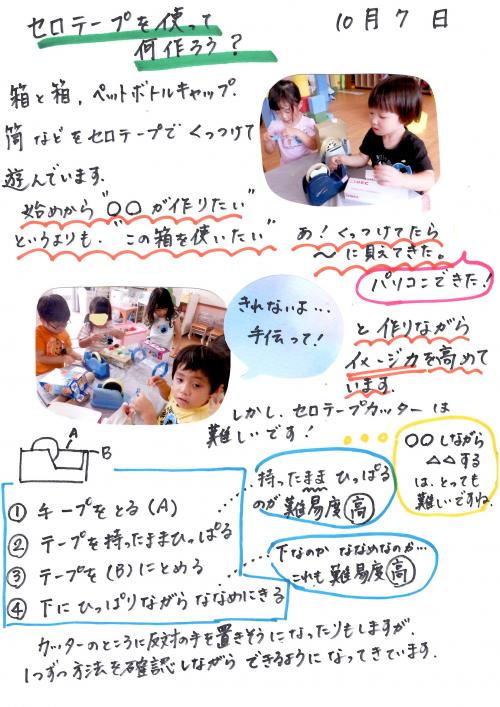 セロテープを使って
何作ろう？
10月7日
箱と箱、ペットボトルキャップ、
筒などをセロテープでくっつけて
遊んでいます。
始めから"〇〇が作りたい"
というよりも、"この箱を使いたい"
あ！くっつけてたら
〜に見えてきた。
パソコンできた！
と作りながら
イメージ力を高めて
います。
きれないよ…
手伝って！
しかし、セロテープカッターは
難しいです！
〇〇しながら
△△する
は、とっても
難しいですね。
A
B
① テープをとる(A)
② テープを持ったままひっぱる
③ テープを(B)にとめる
④ 下にひっぱりながらななめにきる
持ったままひっぱる
のが難易度高
下なのかななめなのか…
これも難易度高
カッターのところに反対の手を置きそうになったりもしますが、
1つずつ方法を確認しながらできるようになってきています。